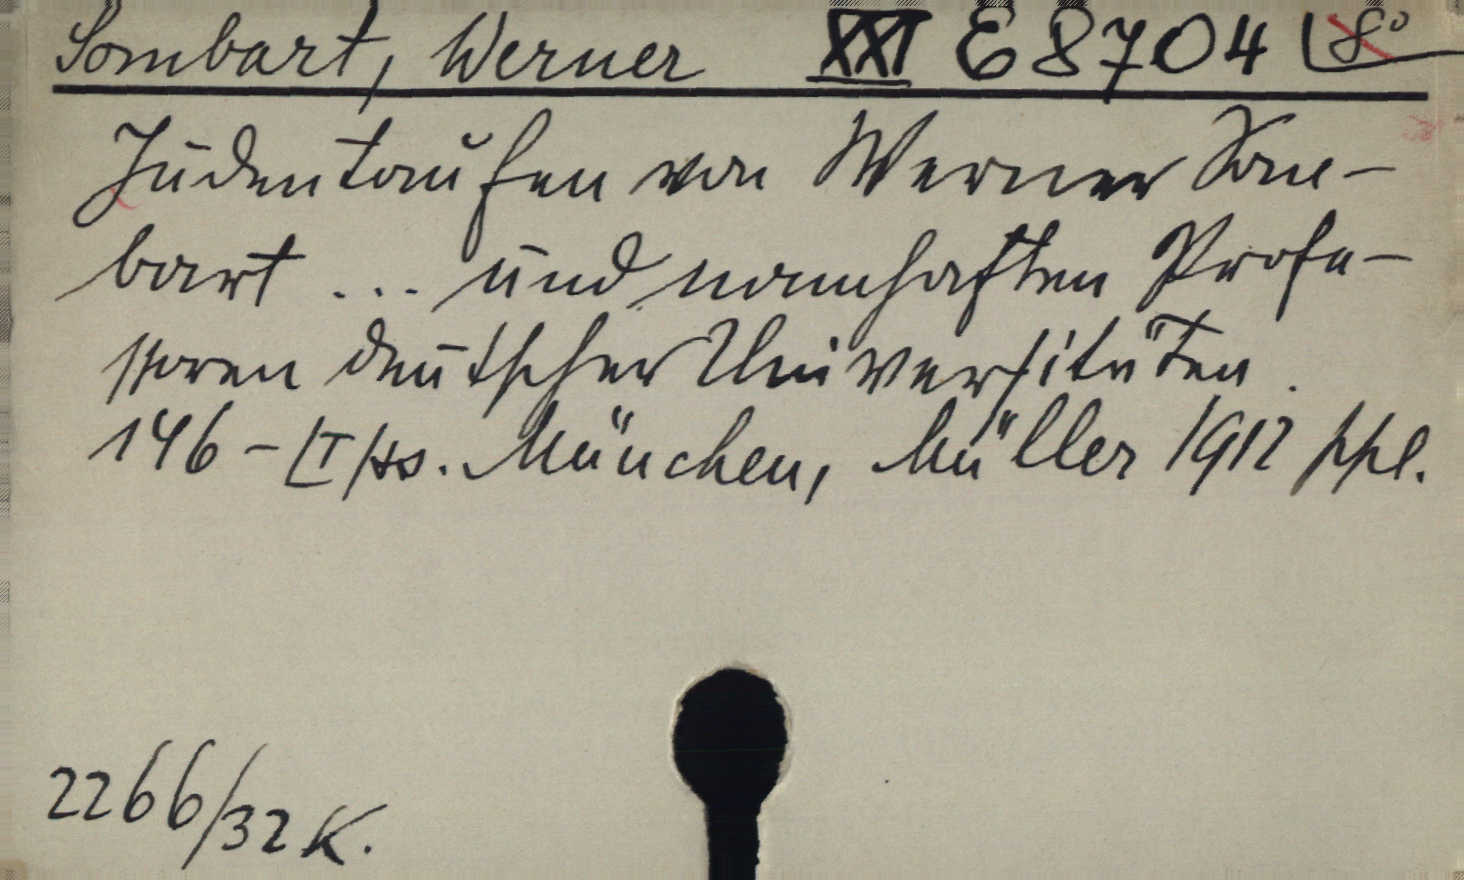 Sombart, Werner XXI E 8704 8°
Judentaufen von Werner Som-
bart ... und namhaften Profe-
ssoren deutscher Universitäten.
146 - [I] ss. München, Müller 1912 ppl.
2266/32 K.